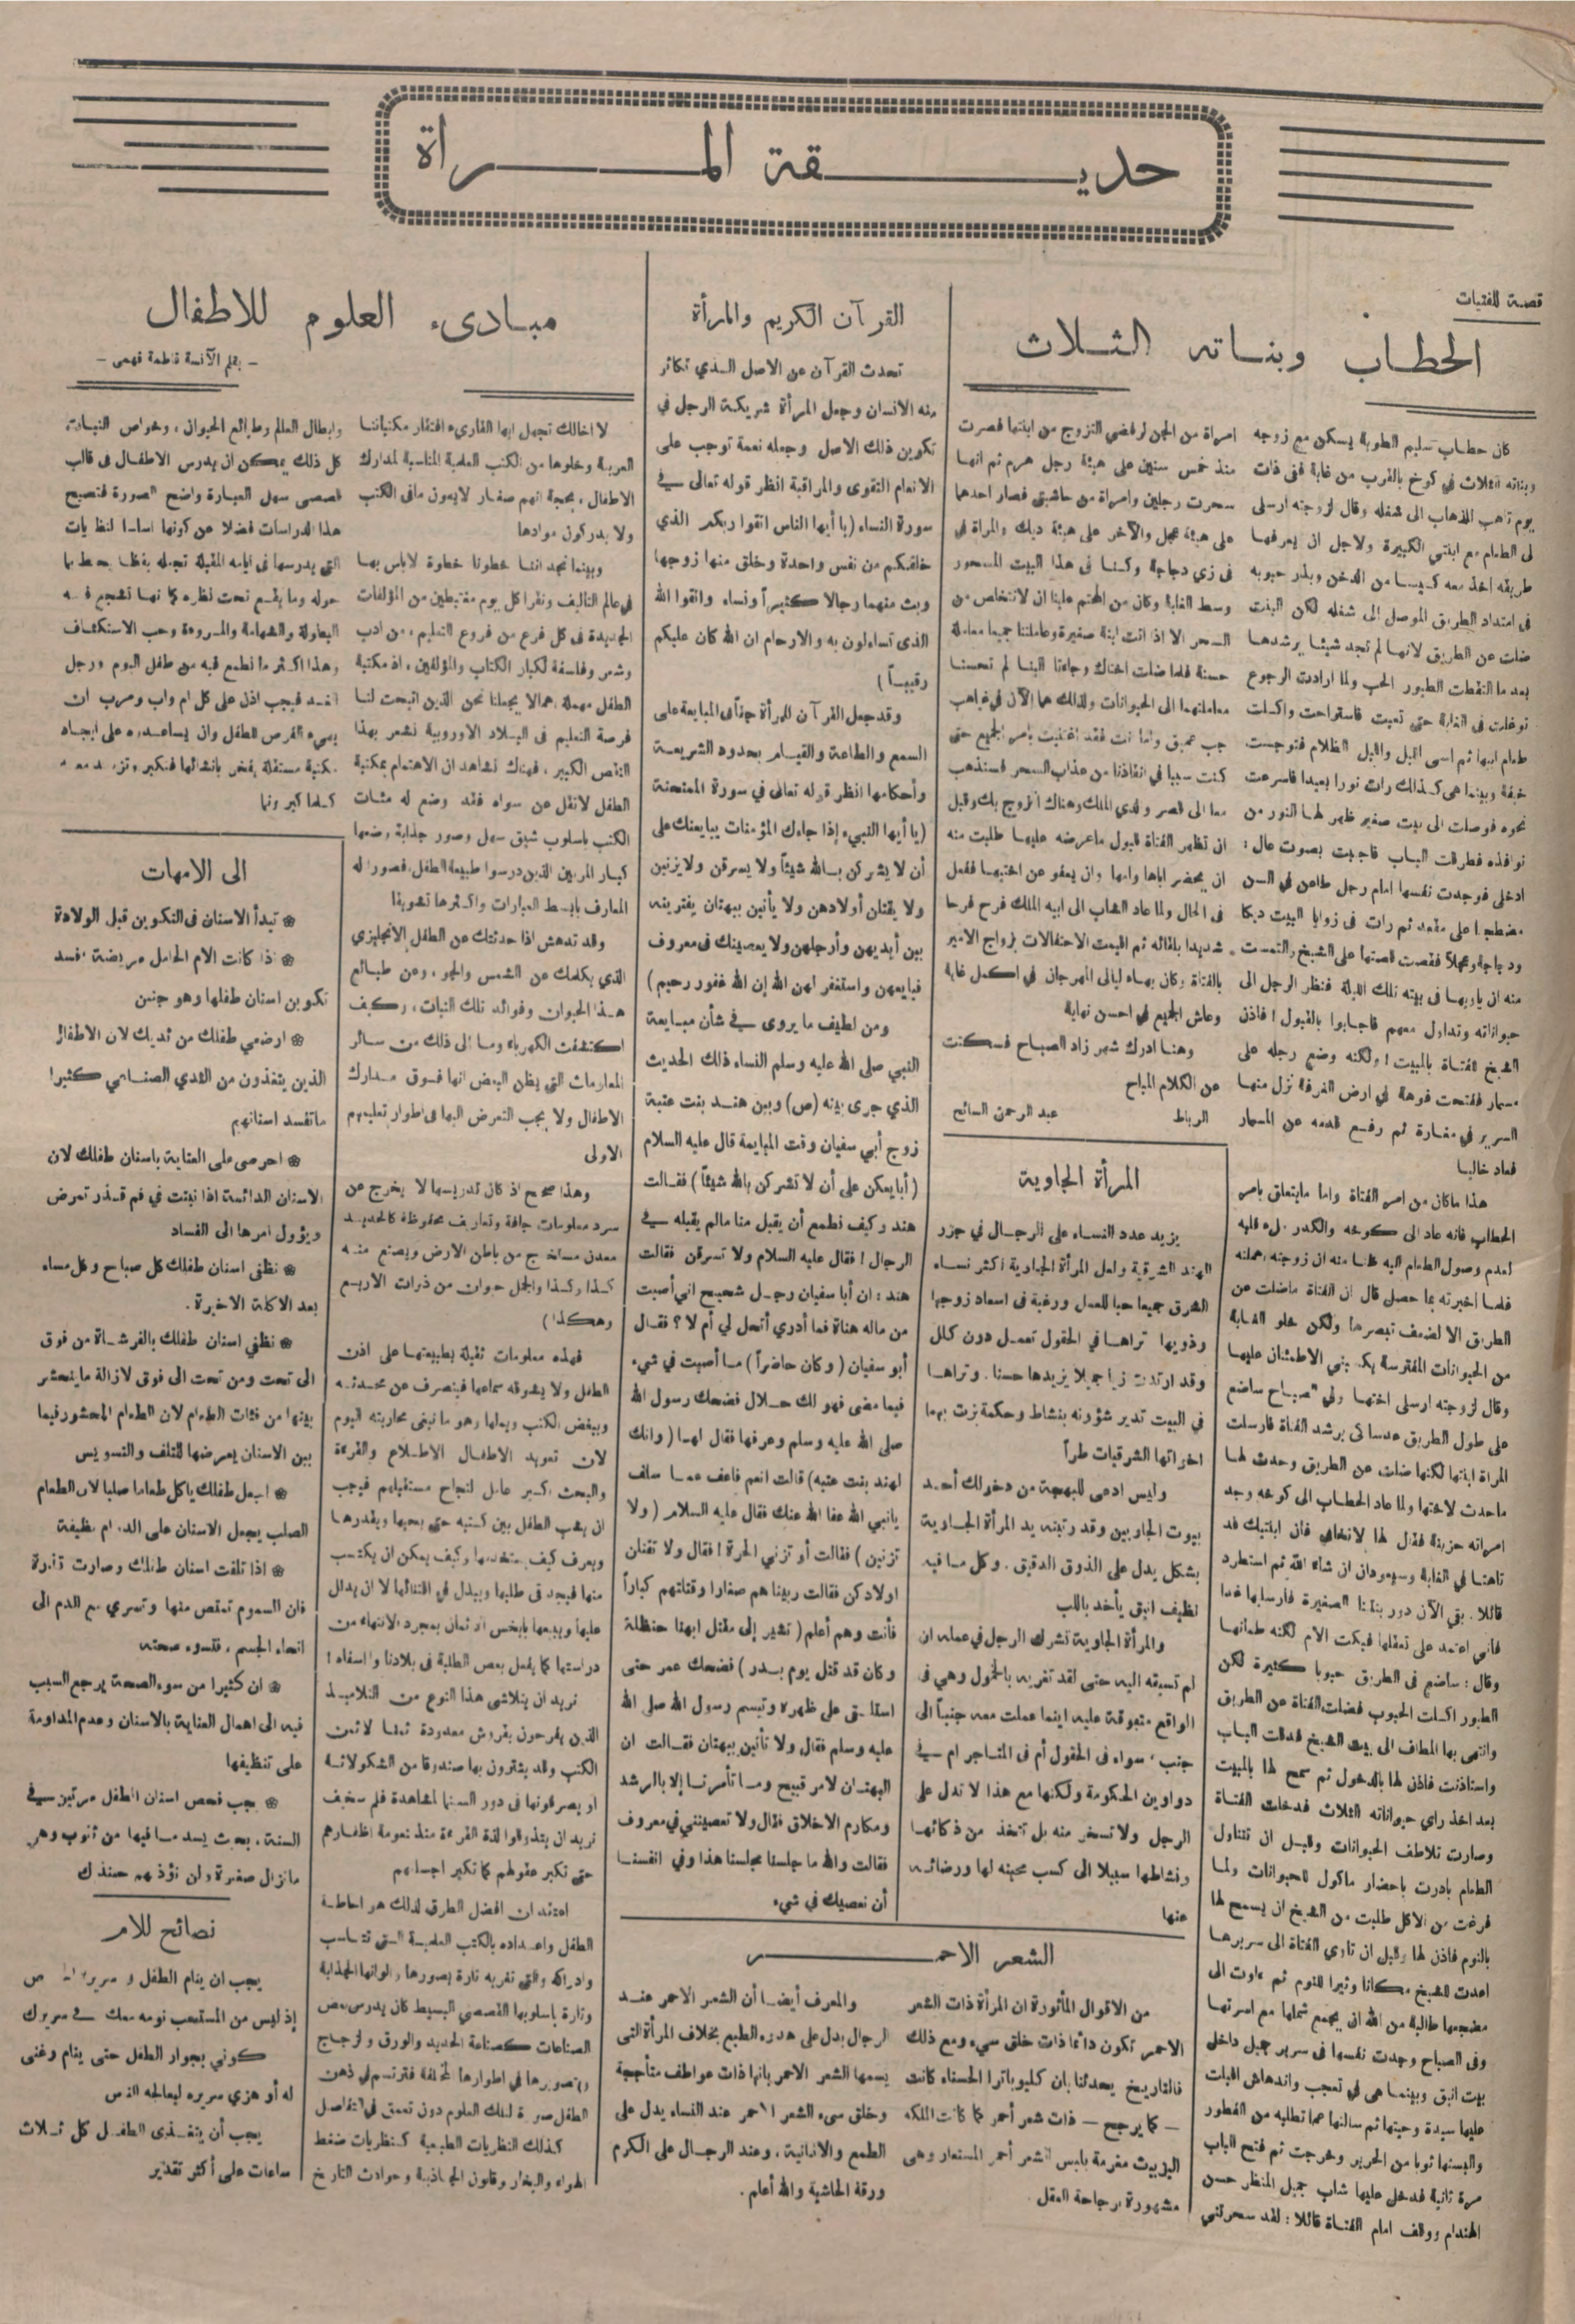 حديقة المرأة
قصة للفتيات
الحطاب وبناته الثلاث
كان حطاب سليم الطوية يسكن مع زوجه
وبناته الثلاث في كوخ بالقرب من غابة ففي ذات
يوم تاهب للذهاب الى شغله وقال لزوجته ارسلى
لى الطعام مع ابنتي الكبيرة ولاجل ان يعرفها
طريقه اخذ معه كيسا من الدخن وبذر حبوبه
فى امتداد الطريق الموصل الى شغله لكن البنت
ضلت عن الطريق لانها لم تجد شيئا يرشدها
بعد ما التقطت الطيور الحب ولما ارادت الرجوع
توغلت فى الغابة حتى تعبت فاستراحت واكلت
طعام ابيها ثم امسى الليل واقبل الظلام فتوجست
خيفة وبينما هى كذلك رات نورا بعيدا فاسرعت
نحوه فوصلت الى بيت صغير ظهر لها النور من
نوافذه فطرقت الباب فاجيبت بصوت عال :
ادخلى فوجدت نفسها امام رجل طاعن في السن
مضطجعا على مقعد ثم رات فى زوايا البيت ديكا
ودجاجة وعجلا فقصت قصتها على الشيخ والتمست
منه ان ياويها فى بيته تلك الليلة فنظر الرجل الى
حيواناته وتداول معهم فاجابوا بالقبول ! فاذن
الشيخ للفتاة بالمبيت ! ولكنه وضع رجله على
مسمار ففتحت فوهة في ارض الغرفة نزل منها
السرير في مغارة ثم رفع قدمه عن المسمار
فعاد خاليا
هذا ماكان من امر الفتاة واما مايتعلق بامر
الحطاب فانه عاد الى كوخه والكدر ملء قلبه
لعدم وصول الطعام اليه ظنا منه ان زوجته اهملته
فلما اخبرته بما حصل قال ان الفتاة ماضلت عن
الطريق الا لضعف تبصرها ولكن خلو الغابة
من الحيوانات المفترسة يكفيني الاطمئنان عليها
وقال لزوجته ارسلى اختها ولي الصباح ساضع
على طول الطريق عدسا كى يرشد الفتاة فارسلت
المراة ابنتها لكنها ضلت عن الطريق وحدث لها
ماحدث لاختها ولما عاد الحطاب الى كوخه وجد
امراته حزينة فقال لها لاتخافى فان ابنتيك قد
تاهتا في الغابة وسيعودان ان شاء الله ثم استطرد
قائلا . بقي الآن دور بنتنا الصغيرة فارسليها غدا
فاني اعتمد على تعقلها فبكت الام لكنه طمانها
وقال : ساضع فى الطريق حبوبا كثيرة لكن
الطيور اكلت الحبوب فضلت الفتاة عن الطريق
وانتهى بها المطاف الى بيت الشيخ فدقت الباب
واستاذنت فاذن لها بالدخول ثم سمح لها بالمبيت
بعد اخذ راي حيواناته الثلاث فدخلت الفتاة
وصارت تلاطف الحيوانات وقبل ان تتناول
الطعام بادرت باحضار ماكول للحيوانات ولما
فرغت من الاكل طلبت من الشيخ ان يسمح لها
بالنوم فاذن لها وقبل ان تاوي الفتاة الى سريرها
اعدت للشيخ مكانا وثيرا للنوم ثم عاوت الى
مضجعها طالبة من الله ان يجمع شملها مع اسرتها
وفى الصباح وجدت نفسها فى سرير جميل داخل
بيت انيق وبينما هى في تعجب واندهاش اقبلت
عليها سيدة وحيتها ثم سالتها عما تطلبه من الفطور
والبستها ثوبا من الحرير وخرجت ثم فتح الباب
مرة ثانية فدخل عليها شاب جميل المنظر حسن
الهندام ووقف امام الفتاة قائلا : لقد سحرتني
امراة من الجن لرفضي التزوج من ابنتها فصرت
منذ خمس سنين على هيئة رجل هرم ثم انها
سحرت رجلين وامراة من حاشيتي فصار احدهما
على هيئة عجل والآخر على هيئة ديك والمراة في
في زي دجاجة وكنا فى هذا البيت المسحور
وسط الغابة وكان من المحتم علينا ان لانتخلص من
السحر الا اذا اتت ابنة صغيرة وعاملتنا جميعا معاملة
حسنة فلما ضلت اختاك وجاءتا الينا لم تحسنا
معاملتهما الى الحيوانات ولذلك هما الآن في غياهب
جب عميق واما انت فقد اعتنيت بامر الجميع حتى
كنت سببا في انقاذنا من عذاب السحر فسنذهب
معا الى قصر والدي الملك وهناك اتزوج بك وقبل
ان تظهر الفتاة قبول ماعرضه عليها طلبت منه
ان يحضر اباها وامها وان يعفو عن اختيها ففعل
فى الحال ولما عاد الشاب الى ابيه الملك فرح فرحا
شديدا بلقائه ثم اقيمت الاحتفالات بزواج الامير
بالفتاة وكان بهاء ليالى المهرجان في اكمل غاية
وعاش الجميع في احسن نهاية
وهنا ادرك شهر زاد الصباح فسكتت
عن الكلام المباح
الرباط عبد الرحمن السائح
المرأة الجاوية
يزيد عدد النساء على الرجال في جزر
الهند الشرقية ولعل المرأة الجاوية اكثر نساء
الشرق جميعا حبا للعمل ورغبة فى اسعاد زوجها
وذويها تراها في الحقول تعمل دون كلل
وقد ارتدت زيا جميلا يزيدها حسنا . وتراها
في البيت تدير شؤونه بنشاط وحكمة بزت بهما
اخواتها الشرقيات طراً
وليس ادعى للبهجة من دخولك أحد
بيوت الجاويين وقد رتبته يد المرأة الجاوية
بشكل يدل على الذوق الدقيق . وكل ما فيه
نظيف انيق يأخذ باللب
والمرأة الجاوية تشرك الرجل في عمله ان
لم تسبقه اليه حتى لقد تغريه بالخمول وهي فى
الواقع متفوقة عليه اينما عملت معه جنباً الى
جنب ، سواء فى الحقول أم فى المتاجر ام في
دواوين الحكومة ولكنها مع هذا لا تدل على
الرجل ولا تسخر منه بل تتخذ من ذكائها
ونشاطها سبيلا الى كسب محبته لها ورضائه
عنها
القرآن الكريم والمرأة
تحدث القرآن عن الاصل الذي تكاثر
منه الانسان وجعل المرأة شريكة الرجل في
تكوين ذلك الاصل وجعله نعمة توجب على
الانعام التقوى والمراقبة انظر قوله تعالى في
سورة النساء ( يا أيها الناس اتقوا ربكم الذي
خلقكم من نفس واحدة وخلق منها زوجها
وبث منهما رجالا كثيراً ونساء واتقوا الله
الذى تساءلون به والارحام ان الله كان عليكم
رقيباً )
وقد جعل القرآن للمرأة حقاً فى المبايعة على
السمع والطاعة والقيام بحدود الشريعة
وأحكامها انظر قوله تعالى في سورة الممتحنة
( يا أيها النبيء إذا جاءك المؤمنات يبايعنك على
أن لا يشركن بالله شيئاً ولا يسرقن ولا يزنين
ولا يقتلن أولادهن ولا يأتين ببهتان يفترينه
بين أيديهن وأرجلهن ولا يعصينك فى معروف
فبايعهن واستغفر لهن الله إن الله غفور رحيم )
ومن لطيف ما يروى في شأن مبايعة
النبي صلى الله عليه وسلم النساء ذلك الحديث
الذي جرى بينه (ص) وبين هند بنت عتبة
زوج أبي سفيان وقت المبايعة قال عليه السلام
( أبايعكن على أن لا تشركن بالله شيئاً ) فقالت
هند وكيف نطمع أن يقبل منا مالم يقبله في
الرجال ! فقال عليه السلام ولا تسرقن فقالت
هند : ان أبا سفيان رجل شحيح اني أصبت
من ماله هناة فما أدري أتحل لي أم لا ؟ فقال
أبو سفيان ( وكان حاضراً ) ما أصبت في شيء
فيما مضى فهو لك حلال فضحك رسول الله
صلى الله عليه وسلم وعرفها فقال لها ( وانك
لهند بنت عتبه ) قالت انعم فاعف عما سلف
يانبي الله عفا الله عنك فقال عليه السلام ( ولا
تزنين ) فقالت أو تزني الحرة ! فقال ولا تقتلن
اولادكن فقالت ربينا هم صغارا وقتلتهم كباراً
فأنت وهم أعلم ( تشير إلى مقتل ابنها حنظلة
وكان قد قتل يوم بدر ) فضحك عمر حتى
استلقى على ظهره وتبسم رسول الله صلى الله
عليه وسلم فقال ولا تأتين ببهتان فقالت ان
البهتان لامر قبيح وما تأمرنا إلا بالرشد
ومكارم الاخلاق فقال ولا تعصينني في معروف
فقالت والله ما جلسنا مجلسنا هذا وفي انفسنا
أن نعصيك في شيء
الشعر الاحمر
من الاقوال المأثورة ان المرأة ذات الشعر
الاحمر تكون دائما ذات خلق سيء ومع ذلك
فالتاريخ يحدثنا بان كليوباترا الحسناء كانت
— كما يرجح — ذات شعر أحمر كما كانت الملكة
اليزبيث مغرمة بلبس الشعر أحمر المستعار وهى
مشهورة برجاحة العقل .
والمعرف أيضا أن الشعر الاحمر عند
الرجال يدل على هدوء الطبع بخلاف المرأة التى
يسمها الشعر الاحمر بانها ذات عواطف متأججة
وخلق سيء الشعر الاحمر عند النساء يدل على
الطمع والانانية ، وعند الرجال على الكرم
ورقة الحاشية والله أعلم .
مبادىء العلوم للاطفال
— بقلم الآنسة فاطمة فهمى —
لا اخالك تجهل ايها القارىء افتقار مكتباتنا
العربية وخلوها من الكتب العلمية المناسبة لمدارك
الاطفال ، بحجة انهم صغار لايعون مافى الكتب
ولا يدركون موادها
وبينما نجد اننا خطونا خطوة لاباس بها
فى عالم التاليف ونقرا كل يوم مغتبطين من المؤلفات
الجديدة فى كل فرع من فروع التعليم ، من ادب
وشعر وفلسفة لكبار الكتاب والمؤلفين ، اذ مكتبة
الطفل مهملة اهمالا يجعلنا نحن الذين اتيحت لنا
فرصة التعليم فى البلاد الاوروبية نشعر بهذا
النقص الكبير ، فهناك نشاهد ان الاهتمام بمكتبة
الطفل لاتقل عن سواه فقد وضع له مئات
الكتب باسلوب شيق سهل وصور جذابة وضعها
كبار المربين الذين درسوا طبيعة الطفل ، فصورا له
المعارف بابسط العبارات واكثرها تشويقا
وقد تدهش اذا حدثتك عن الطفل الانجليزي
الذي يكلمك عن الشمس والجو ، وعن طبائع
هذا الحيوان وفوائد تلك النبات ، وكيف
اكتشفت الكهرباء وما الى ذلك من سائر
المعلومات التى يظن البعض انها فوق مدارك
الاطفال ولا يجب التعرض اليها فى اطوار تعليمهم
الاولى
وهذا صحيح اذ كان تدريسها لا يخرج عن
سرد معلومات جافة وتعاريف محفوظة كالحديد
معدن مستخرج من باطن الارض ويصنع منه
كذا وكذا والجمل حيوان من ذوات الاربع
وهكذا )
فهذه معلومات ثقيلة بطبيعتها على اذن
الطفل ولا يشوقه سماعها فينصرف عن محدثه
ويبغض الكتب ويملها وهو ما نبغى محاربته اليوم
لان تعويد الاطفال الاطلاع والقراءة
والبحث اكبر عامل لنجاح مستقبلهم فيجب
ان يشب الطفل بين كتبه حتى يحبها ويقدرها
ويعرف كيف يستخدمها وكيف يمكن ان يكتسب
منها فيجد فى طلبها ويبذل في اقتنائها لا ان يدلل
عليها ويبيعها بابخس اثمان بمجرد الانتهاء من
دراستها كما يفعل بعض الطلبة فى بلادنا وا اسفاه !
نريد ان يتلاشى هذا النوع من التلاميذ
الذين يفرحون بقروش معدودة ثمنا لاثمن
الكتب وقد يشترون بها صندوقا من الشكولاتة
او يصرفونها فى دور السنما لمشاهدة فلم سخيف
نريد ان يتذوقوا لذة القراءة منذ نعومة اظفارهم
حتى تكبر عقولهم كما تكبر اجسامهم
اعتقد ان افضل الطرق لذلك هو احاطة
الطفل واعداده بالكتب العلمية التى تتناسب
وادراكه والتى تغريه تارة بصورها والوانها الجذابة
وتارة باسلوبها القصصي البسيط كان يدرس بعض
الصناعات كصناعة الحديد والورق والزجاج
وتصويرها في اطوارها المختلفة فترتسم في ذهن
الطفل صورة لتلك العلوم دون تعمق في التفاصيل
كذلك النظريات الطبيعية كنظريات ضغط
الهواء والبخار وقانون الجاذبية وحوادث التاريخ
وابطال العالم وطبائع الحيوان ، وخواص النبات
كل ذلك يمكن ان يدرس الاطفال فى قالب
قصصى سهل العبارة واضح الصورة فتصبح
هذا الدراسات فضلا عن كونها اساسا لنظريات
التى يدرسها فى ايامه المقبلة تجعله يقظا يحيط بما
حوله وما يقع تحت نظره كما انها تشجع فيه
البطولة والشهامة والمروءة وحب الاستكشاف
وهذا اكثر ما نطمع فيه من طفل اليوم ورجل
الغد فيجب اذن على كل ام واب ومرب ان
يهيء الفرص للطفل وان يساعده على ايجاد
مكتبة مستقلة يفخر بانشائها فتكبر وتزيد معه
كلما كبر ونما
الى الامهات
❀ تبدأ الاسنان فى التكوين قبل الولادة
❀ اذا كانت الام الحامل مريضة افسد
تكوين اسنان طفلها وهو جنين
❀ ارضعي طفلك من ثديك لان الاطفال
الذين يتغذون من الثدي الصناعي كثيرا
ماتفسد اسنانهم
❀ احرصى على العناية باسنان طفلك لان
الاسنان الدائمة اذا نبتت في فم قذر تمرض
ويؤول امرها الى الفساد
❀ نظفى اسنان طفلك كل صباح وكل مساء
بعد الاكلة الاخيرة .
❀ نظفي اسنان طفلك بالفرشاة من فوق
الى تحت ومن تحت الى فوق لازالة ماينحشر
بينها من فتات الطعام لان الطعام المحشور فيما
بين الاسنان يعرضها للتلف والتسويس
❀ اجعل طفلك ياكل طعاما صلبا لان الطعام
الصلب يجعل الاسنان على الدوام نظيفة
❀ اذا تلفت اسنان طفلك وصارت قذرة
فان السموم تمتص منها وتسري مع الدم الى
انحاء الجسم ، فتسوء صحته
❀ ان كثيرا من سوء الصحة يرجع السبب
فيه الى اهمال العناية بالاسنان وعدم المداومة
على تنظيفها
❀ يجب فحص اسنان الطفل مرتين في
السنة ، بحيث يسد ما فيها من ثقوب وهي
ماتزال صغيرة ولن تؤذيهم حينذاك
نصائح للام
يجب ان ينام الطفل و سريره
إذ ليس من المستصعب نومه معك في سريرك
كوني بجوار الطفل حتى ينام وغنى
له أو هزي سريره ليعالجه النعاس
يجب أن يتغذى الطفل كل ثلاث
ساعات على أكثر تقدير